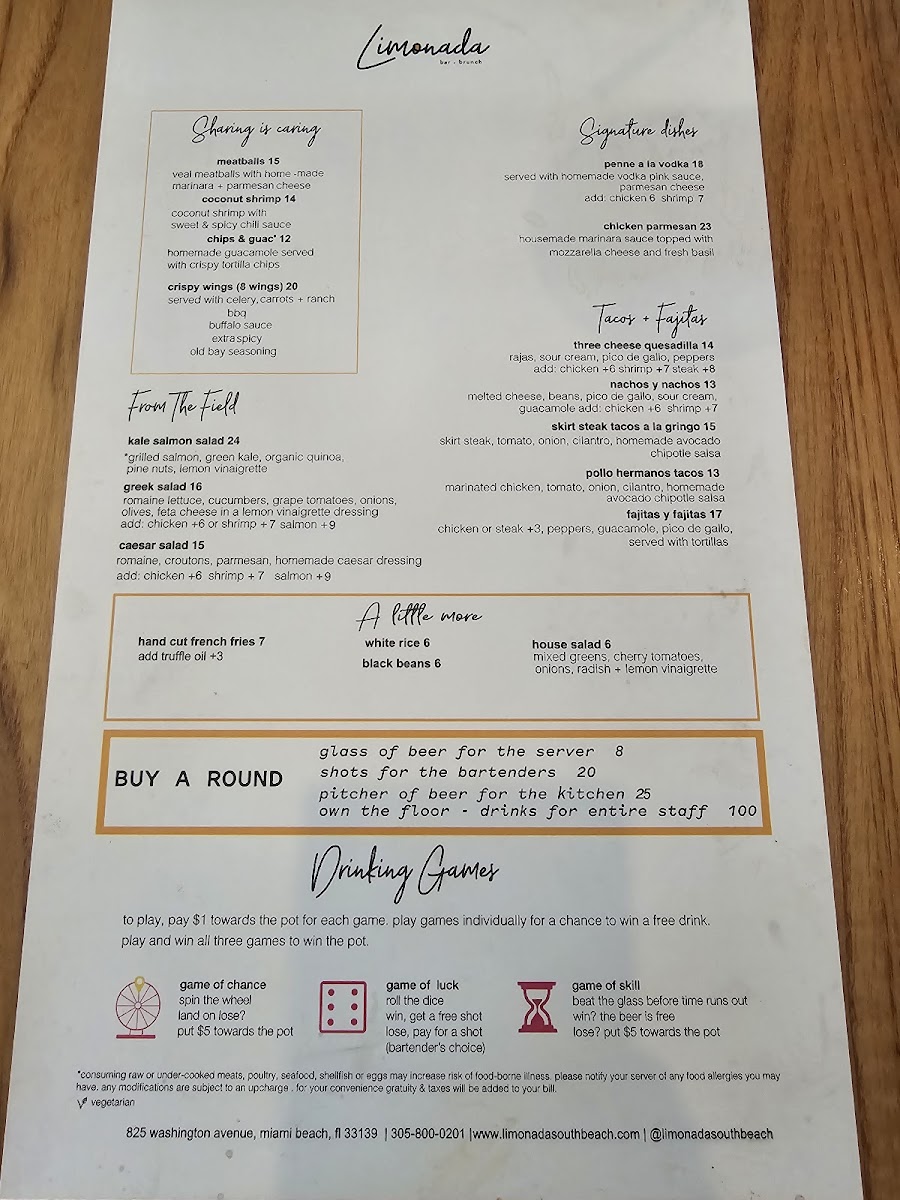 Limonada
bar + brunch
Sharing is caring
meatballs 15
veal meatballs with home-made
marinara + parmesan cheese
coconut shrimp 14
coconut shrimp with
sweet & spicy chili sauce
chips & guac* 12
homemade guacamole served
with crispy tortilla chips
crispy wings (8 wings) 20
served with celery, carrots + ranch
bbq
buffalo sauce
extra spicy
old bay seasoning
From The Field
kale salmon salad 24
*grilled salmon, green kale, organic quinoa,
pine nuts, lemon vinaigrette
greek salad 16
romaine lettuce, cucumbers, grape tomatoes, onions,
olives, feta cheese in a lemon vinaigrette dressing
add: chicken +6 or shrimp +7 salmon +9
caesar salad 15
romaine, croutons, parmesan, homemade caesar dressing
add: chicken +6 shrimp +7 salmon +9
Signature dishes
penne a la vodka 18
served with homemade vodka pink sauce,
parmesan cheese
add: chicken 6 shrimp 7
chicken parmesan 23
housemade marinara sauce topped with
mozzarella cheese and fresh basil
Tacos + Fajitas
three cheese quesadilla 14
rajas, sour cream, pico de gallo, peppers
add: chicken +6 shrimp +7 steak +8
nachos y nachos 13
melted cheese, beans, pico de gallo, sour cream,
guacamole add: chicken +6 shrimp +7
skirt steak tacos a la gringo 15
skirt steak, tomato, onion, cilantro, homemade avocado
chipotle salsa
pollo hermanos tacos 13
marinated chicken, tomato, onion, cilantro, homemade
avocado chipotle salsa
fajitas y fajitas 17
chicken or steak +3, peppers, guacamole, pico de gallo,
served with tortillas
A little more
hand cut french fries 7
add truffle oil +3
white rice 6
black beans 6
house salad 6
mixed greens, cherry tomatoes,
onions, radish + lemon vinaigrette
BUY A ROUND
glass of beer for the server 8
shots for the bartenders 20
pitcher of beer for the kitchen 25
own the floor - drinks for entire staff 100
Drinking Games
to play, pay $1 towards the pot for each game. play games individually for a chance to win a free drink.
play and win all three games to win the pot.
game of chance
spin the wheel
land on lose?
put $5 towards the pot
game of luck
roll the dice
win, get a free shot
lose, pay for a shot
(bartender's choice)
game of skill
beat the glass before time runs out
win? the beer is free
lose? put $5 towards the pot
*consuming raw or under-cooked meats, poultry, seafood, shellfish or eggs may increase risk of food-borne illness. please notify your server of any food allergies you may
have. any modifications are subject to an upcharge . for your convenience gratuity & taxes will be added to your bill.
vegetarian
825 washington avenue, miami beach, fl 33139 | 305-800-0201 |www.limonadasouthbeach.com | @limonadasouthbeach